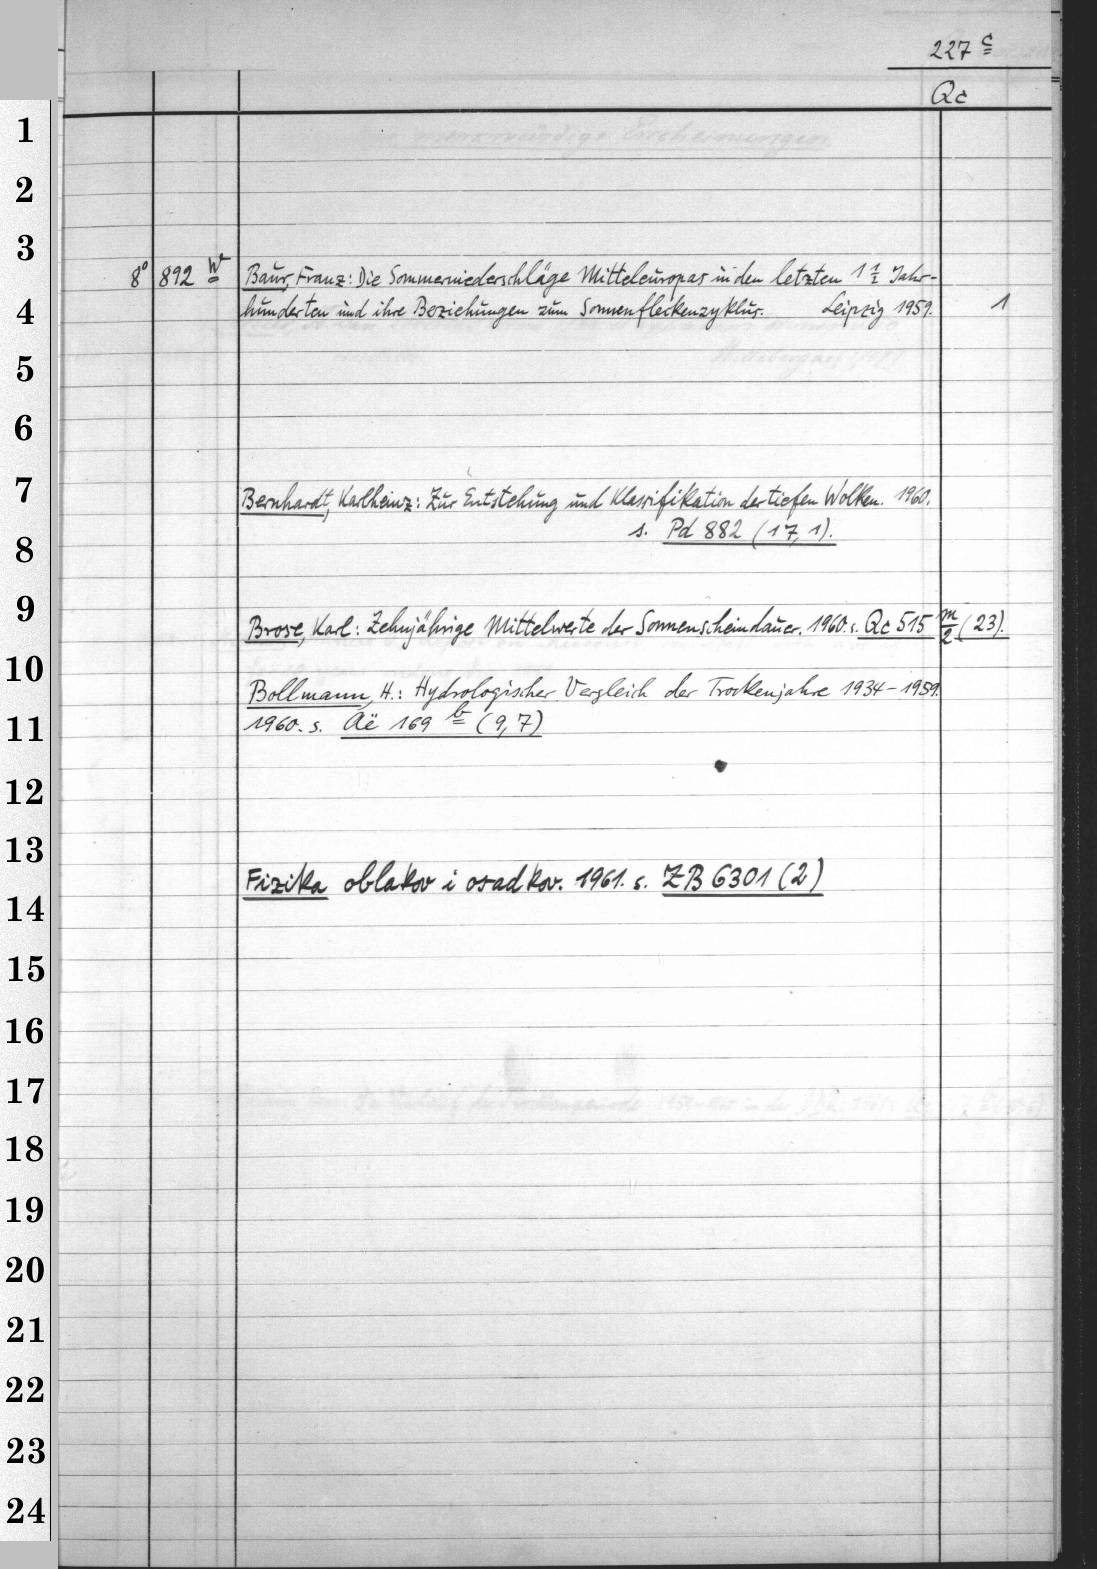 227 c
Qc
1
2
3
8° 892 w Baur, Franz: Die Sommerniederschläge Mitteleuropas in den letzten 1 1/2 Jahr-
4 hunderten und ihre Beziehungen zum Sonnenfleckenzyklus. Leipzig 1959. 1
5
6
7 Bernhardt, Karlheinz: Zur Entstehung und Klassifikation der tiefen Wolken. 1960.
s. Pd 882 (17, 1).
8
9
Brose, Karl: Zehnjährige Mittelwerte der Sonnenscheindauer. 1960. s. Qc 515 m/2 (23).
10
Bollmann, H.: Hydrologischer Vergleich der Trockenjahre 1934-1959.
11 1960. s. Aë 169 b (9, 7)
12
13
Fizika oblakov i osadkov. 1961. s. ZB 6301 (2)
14
15
16
17
18
19
20
21
22
23
24